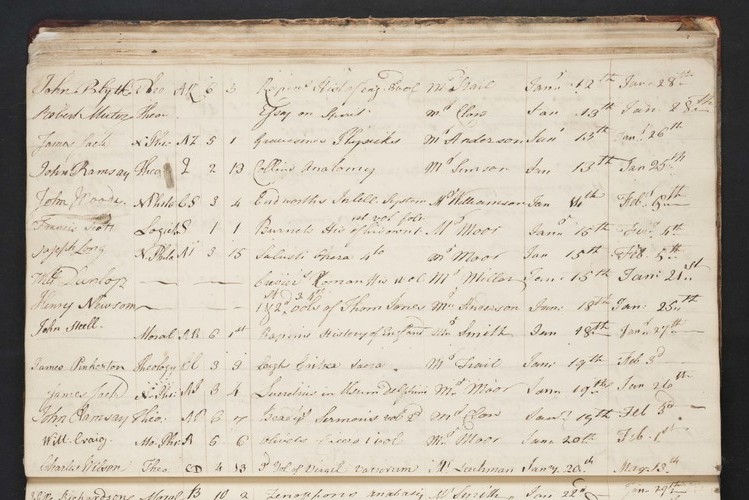 John Blyth Theo AR 6 3 Rapins Hist of eng 3vol Mr Trail Janry 12th Jan 28th
Robert Muter Theo Essay on Spirit Mr Clow Jan 13th Jan 28th
James Jack N Phi AZ 5 1 Gravesande Physicks Mr Anderson Jan 13th Janry 26th
John Ramsay Theo 2 2 13 Collins Anatomy Mr Simson Jan 13th Jan 25th
John Woods N Phi CS 3 4 Cudworths Intell System Mr Williamson Jan 14th Feb
Francis Scott Logick S 1 1 Burnets His of his own t 1st vol folo Mr Moor Janry 15th 4th
Joseph Long N Phil 3 15 Salusti Opera 4to Mr Moor Jan 15th Feb
Will Dunlop Roman His vol Mr Millar Jan 15th Janry 21st
Henry Newsom 1st 2d 3d vols of Thom Jones Mr Anderson Janr 18th Janr 25th
John Steell Moral AR 6 1st Rapins History of England Mr Smith Jan 18th Janry 27th
James Pinkerton Theology CC 3 9 Leighs Critica Sacra Mr Trail Janr 19th Feb 3d
James Jack N Phi 3 4 Lucretius in Usum Delphini Mr Moor Janry 19th Jan 26th
John Ramsay Theo 6 7 Sermons vol 2d Mr Clow Janry 19th Feb 3d
Will Craig Mo Phi R 5 6 1vol Mr Moor Janr 20th Feb 1st
Charles Wilson Theo 4 13 Vol of Virgil variorum Mr Leechman Janry 20th May 13th
Richardson Moral 13 10 2 Zenophons anabasis Mr Smith Jan 22d Jan 29th